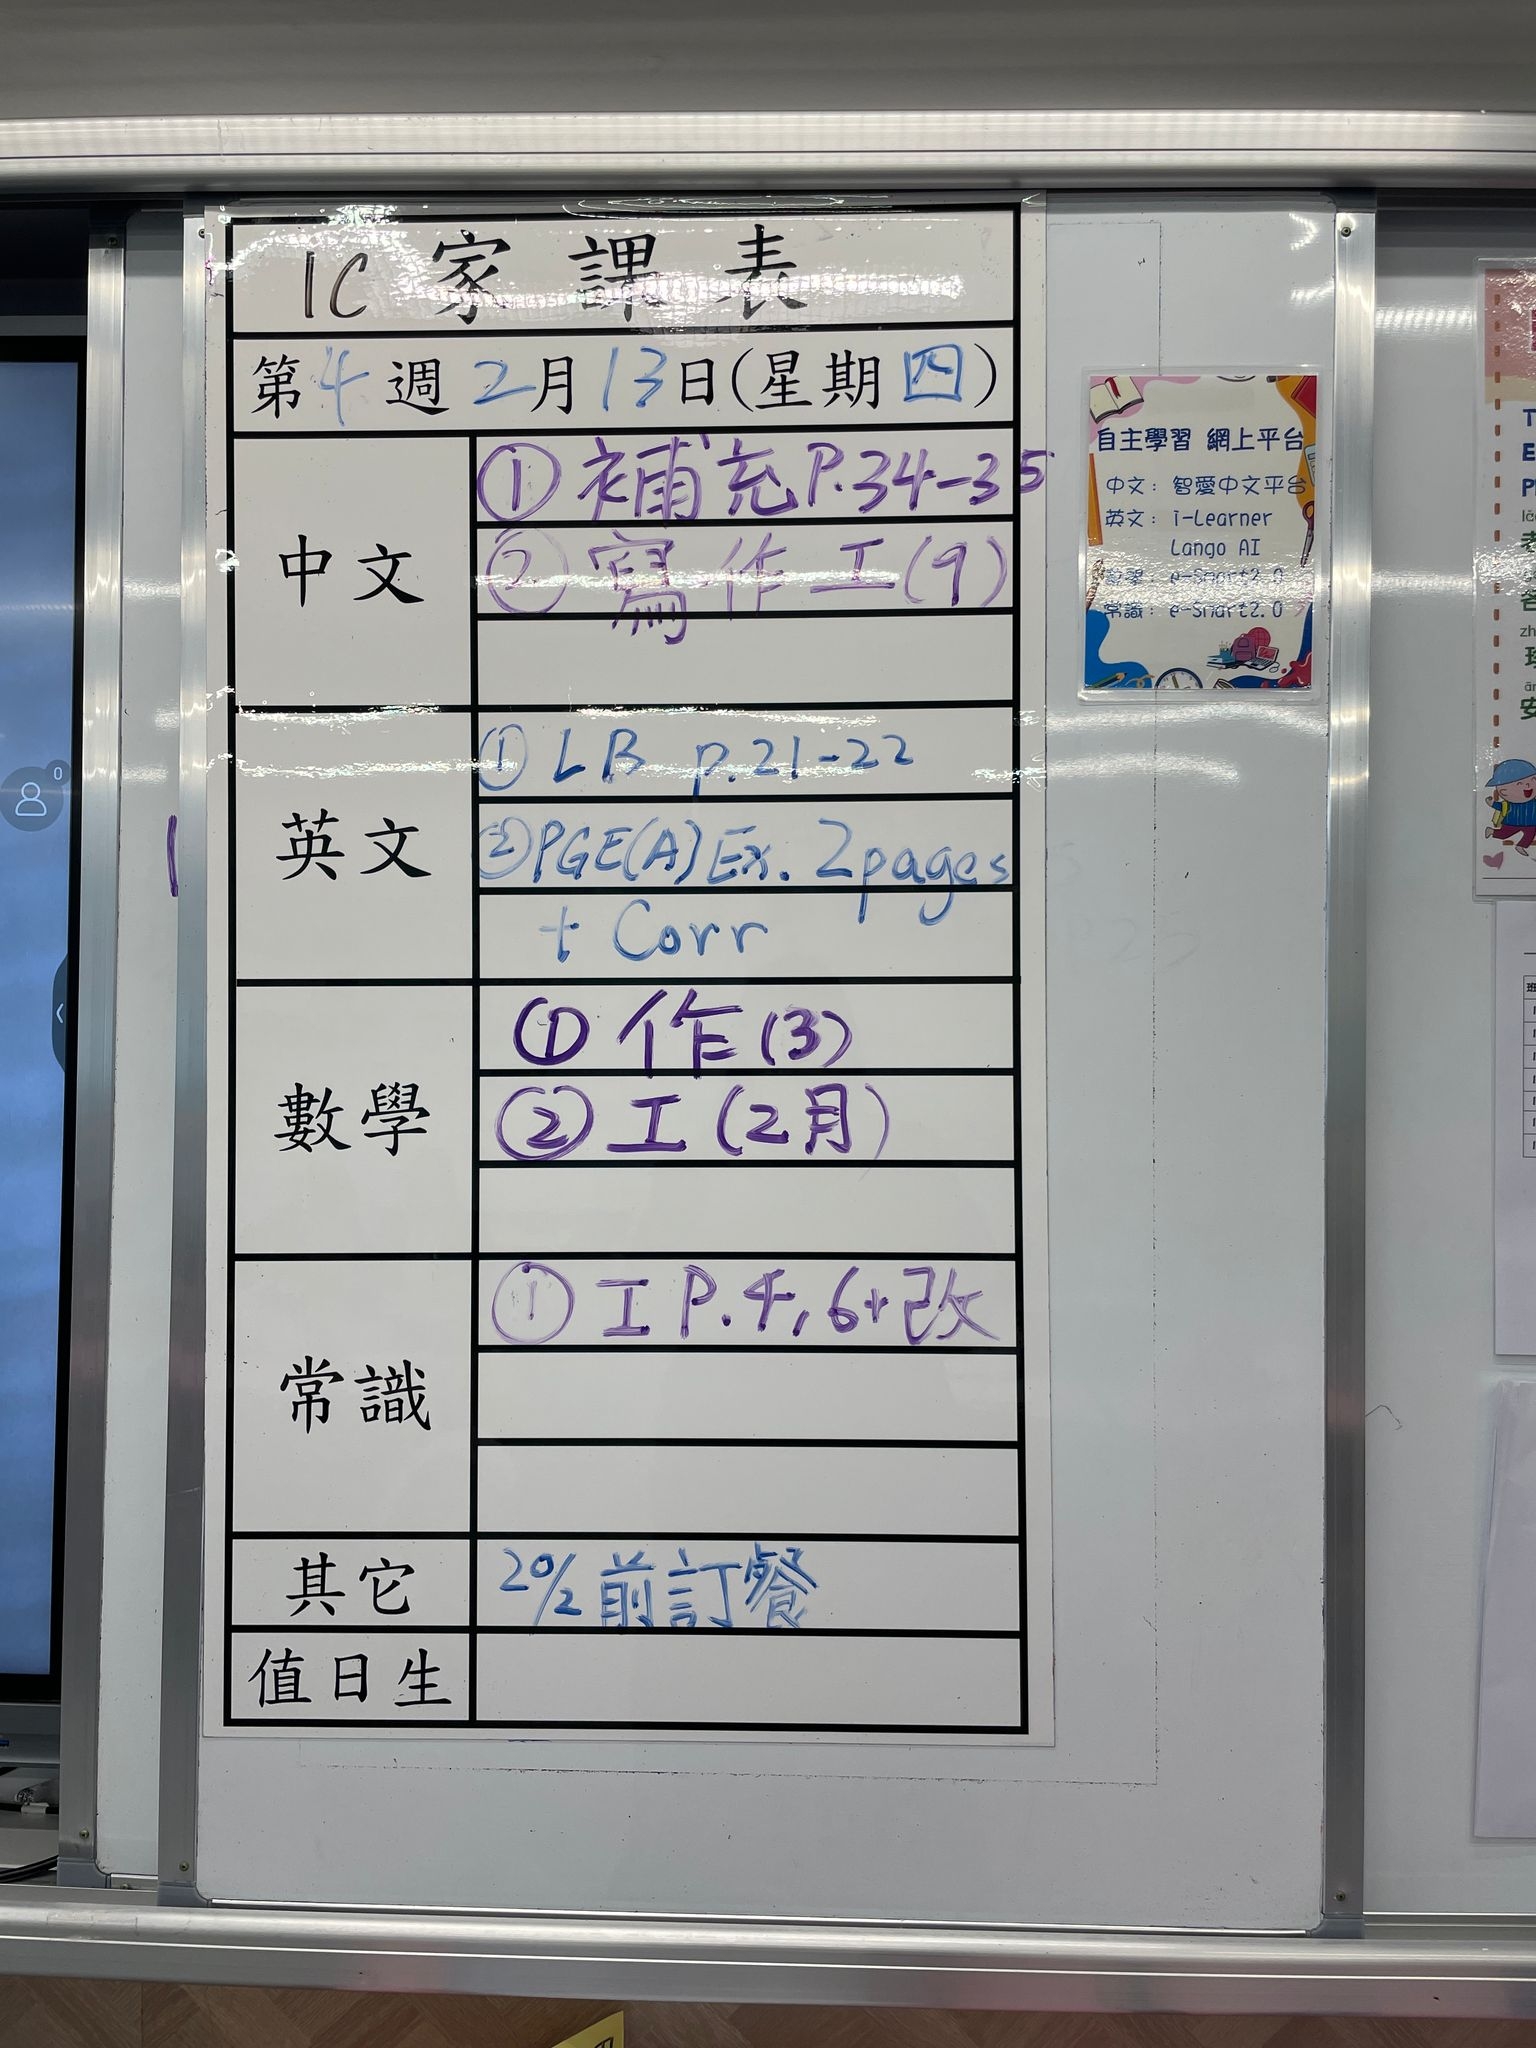 1C 家課表
第4週2月13日(星期四)
中文
①補充P.34-35
②寫作工(9)
英文
①LB p.21-22
②PGE(A)Ex. 2pages
+ Corr
數學
①作(3)
②工(2月)
常識
①工P.4,6+改
其它
20/2前訂餐
值日生
自主學習 網上平台
中文：智愛中文平台
英文：i-Learner
Lango AI
數學：e-Smart2.0
常識：e-Smart2.0
0